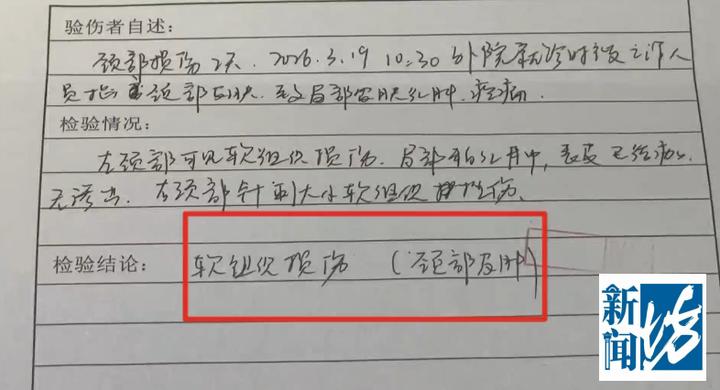 验伤者自述:
颈部损伤2天. 2026.3.19 10:30 外院就诊时被工作人
员 颈部 致局部皮肤红肿. 疼痛.
检验情况:
左颈部可见软组织损伤. 局部 红肿, 表皮已结痂.
无渗出. 左颈部针刺大小软组织 伤.
检验结论: 软组织损伤 (颈部皮肤)
新闻坊